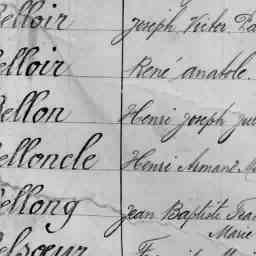 elloir Joseph Victor
elloir René anatole
ellon Henri Joseph
elloncle Henri Armand
ellong Jean Baptiste
Marie
elsœur